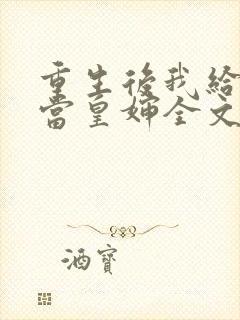 重生後我給
當皇婶全文
酒寶